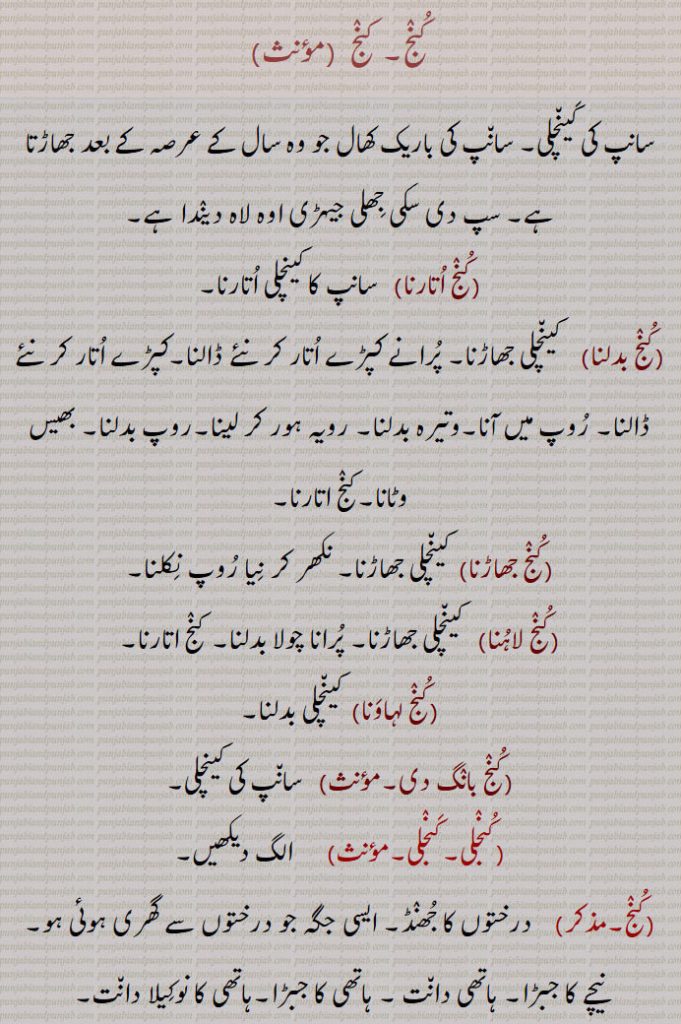 کُنڄ۔ کنڄ (مؤنث)
سانپ کی کَینچلی۔ سانپ کی باریک کھال جو وہ سال کے عرصہ کے بعد جھاڑتا
ہے۔ سپ دی سکی جِھلی جیہڑی اوہ لاہ دیندا ہے۔
(کُنج اُتارنا) سانپ کا کینچلی اُتارنا۔
(کُنج بدلنا) کینچلی جھاڑنا۔ پُرانے کپڑے اُتار کر نئے ڈالنا۔کپڑے اُتار کر نئے
ڈالنا۔ رُوپ میں آنا۔وتیرہ بدلنا۔ رویہ ہور کر لینا۔روپ بدلنا۔ بھیس
وٹانا۔کنج اتارنا۔
(کُنج جھاڑنا) کینچلی جھاڑنا۔ نکھر کر نِیا رُوپ نِکلنا۔
(کُنج لاہُنا) کینچلی جھاڑنا۔ پُرانا چولا بدلنا۔ کنج اتارنا۔
(کُنج لہاوَنا) کینچلی بدلنا۔
(کُنج بانگ دی۔مؤنث) سانپ کی کینچلی۔
(کُنجلی۔ کَنجلی۔مؤنث) الگ دیکھیں۔
(کُنج۔مذکر) درختوں کا جُھنڈ۔ ایسی جگہ جو درختوں سے گھری ہوئی ہو۔
نیچے کا جبڑا۔ ہاتھی دانت ۔ ہاتھی کا جبڑا۔ہاتھی کا نوکیلا دانت۔